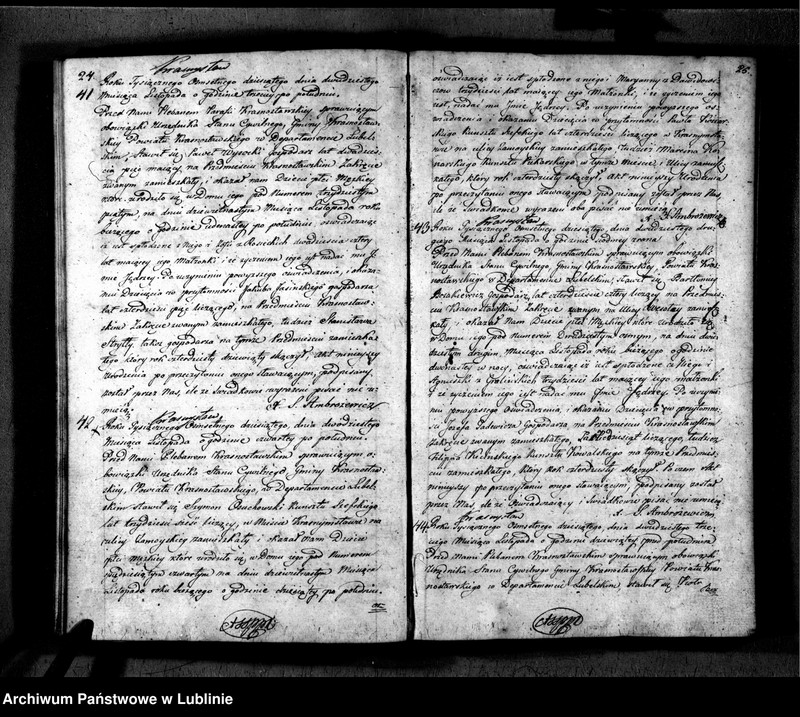 24.
Krasnystaw
41 Roku Tysiącznego Osmsetnego dziesiątego dnia dwudziestego
Miesiąca Listopada o godzinie trzeciej po południu.
Przed Nami Plebanem Parafii Krasnostawskiej sprawującym
obowiązki Urzędnika Stanu Cywilnego Gminy Krasnostaw-
skiej Powiatu Krasnostawskiego w Departamencie Lubel-
skim, Stawił się Paweł Wysocki gospodarz lat dwadzieś-
cia pięć mający, na Przedmieściu Krasnostawskim Zakręcie
zwanym zamieszkały, i okazał nam Dziecię płci Męzkiej
które urodziło się w Domu jego pod Numerem trzydziestym
piątym, na dniu dziewiętnastym Miesiąca Listopada roku
bieżącego o godzinie po południu, oświadczając
iż jest spłodzone z Niego i Zofii z dwadzieścia cztery
lat mającej jego Małżonki, i że życzeniem jego jest nadać mu I-
mie Jędrzej. Po uczynieniu powyższego oświadczenia, i okaza-
niu Dziecięcia w przytomności Jakuba Jasińskiego gospodarza,
lat czterdzieści pięć liczącego, na Przedmieściu Krasnostaw-
skim Zakręcie zwanym zamieszkałego, tudzież Stanisława
także gospodarza na tymże Przedmieściu zamieszka-
łego który rok czterdziesty dziewiąty skończył. Akt niniejszy
Urodzenia po przeczytaniu onego stawającym, podpisany
został przez Nas, ile że świadkowie wyrażeni pisać nie u-
mieją.
X. J. Ambrożewicz
Krasnystaw
42 Roku Tysiącznego Osmsetnego dziesiątego, dnia dwudziestego
Miesiąca Listopada o godzinie czwartej po południu.
Przed Nami Plebanem Krasnostawskim sprawującym o-
bowiązki Urzędnika Stanu Cywilnego Gminy Krasnostaw-
skiej, Powiatu Krasnostawskiego, w Departamencie Lubel-
skim stawił się Szymon Kunsztu Szefskiego
lat trzydzieści sześć liczący, w Mieście Krasnymstawie na
ulicy Zamoyskiej zamieszkały i okazał nam Dziecię
płci Męzkiej które urodziło się w Domu jego pod Numerem
czwartym na dniu dziewiętnastym Miesiąca
Listopada roku bieżącego o godzinie dziesiątej po południu.
25.
oświadczając iż jest spłodzone z niego i Maryanny z
trzydzieści lat mającej jego Małżonki, i że życzeniem jego
jest, nadać mu Imie Jędrzej. Po uczynieniu powyższego o-
świadczenia i okazaniu Dziecięcia w przytomności
Kunsztu Szefskiego lat czterdzieści liczącego w Krasnymsta-
wie na ulicy Zamoyskiej zamieszkałego, tudzież Marcina
Kunsztu w tymże Mieście i Ulicy zamiesz-
kałego, który rok czterdziesty skończył. Akt niniejszy Urodzenia
po przeczytaniu onego stawającym podpisany został przez Nas,
ile że świadkowie wyrażeni oba pisać nie umieją.
X. J. Ambrożewicz
Krasnystaw
43 Roku Tysiącznego Osmsetnego dziesiątego, dnia dwudziestego dru-
giego Miesiąca Listopada o godzinie siódmej zrana.
Przed Nami Plebanem Krasnostawskim sprawującym obowiązki
Urzędnika Stanu Cywilnego Gminy Krasnostawskiej, Powiatu Kras-
nostawskiego w Departamencie Lubelskim, Stawił się Bartłomiej
Gospodarz, lat czterdzieście cztery liczący na Przedmie-
ściu Krasnostawskim Zakręcie zwanym na Ulicy zamiesz-
kały i okazał Nam Dziecię płci Męzkiej które urodziło się
w Domu jego pod Numerem Dwudziestym osmym, na dniu dwu-
dziestym drugim, Miesiąca Listopada roku bieżącego o godzinie
dwunastej w nocy, oświadczając iż jest spłodzone z Niego i
Agnieszki z trzydzieści lat mającej jego małżonki
i że życzeniem jego jest nadać mu Imie Jędrzej. Po uczynie-
niu powyższego Oświadczenia, i okazaniu Dziecięcia w przytomno-
ści Józefa Gospodarza, na Przedmieściu Krasnostawskim
Zakręcie zwanym zamieszkałego, liczącego, tudzież
Filippa Kunsztu Kowalskiego na tymże Przedmie-
ściu zamieszkałego, który Rok czterdziesty skończył
niniejszy po przeczytaniu onego Stawającemu, podpisany został
przez Nas, ile że Oświadczający i świadkowie pisać nie umieją.
X. J. Ambrożewicz
Krasnystaw
44 Roku Tysiącznego Osmsetnego dziesiątego, dnia dwudziestego trze-
ciego Miesiąca Listopada o godzinie dziewiątej przed południem
Przed Nami Plebanem Krasnostawskim sprawującym obowiązki
Urzędnika Stanu Cywilnego Gminy Krasnostawskiej Powiatu Kras-
nostawskiego w Departamencie Lubelskim stawił się Piotr
Archiwum Państwowe w Lublinie